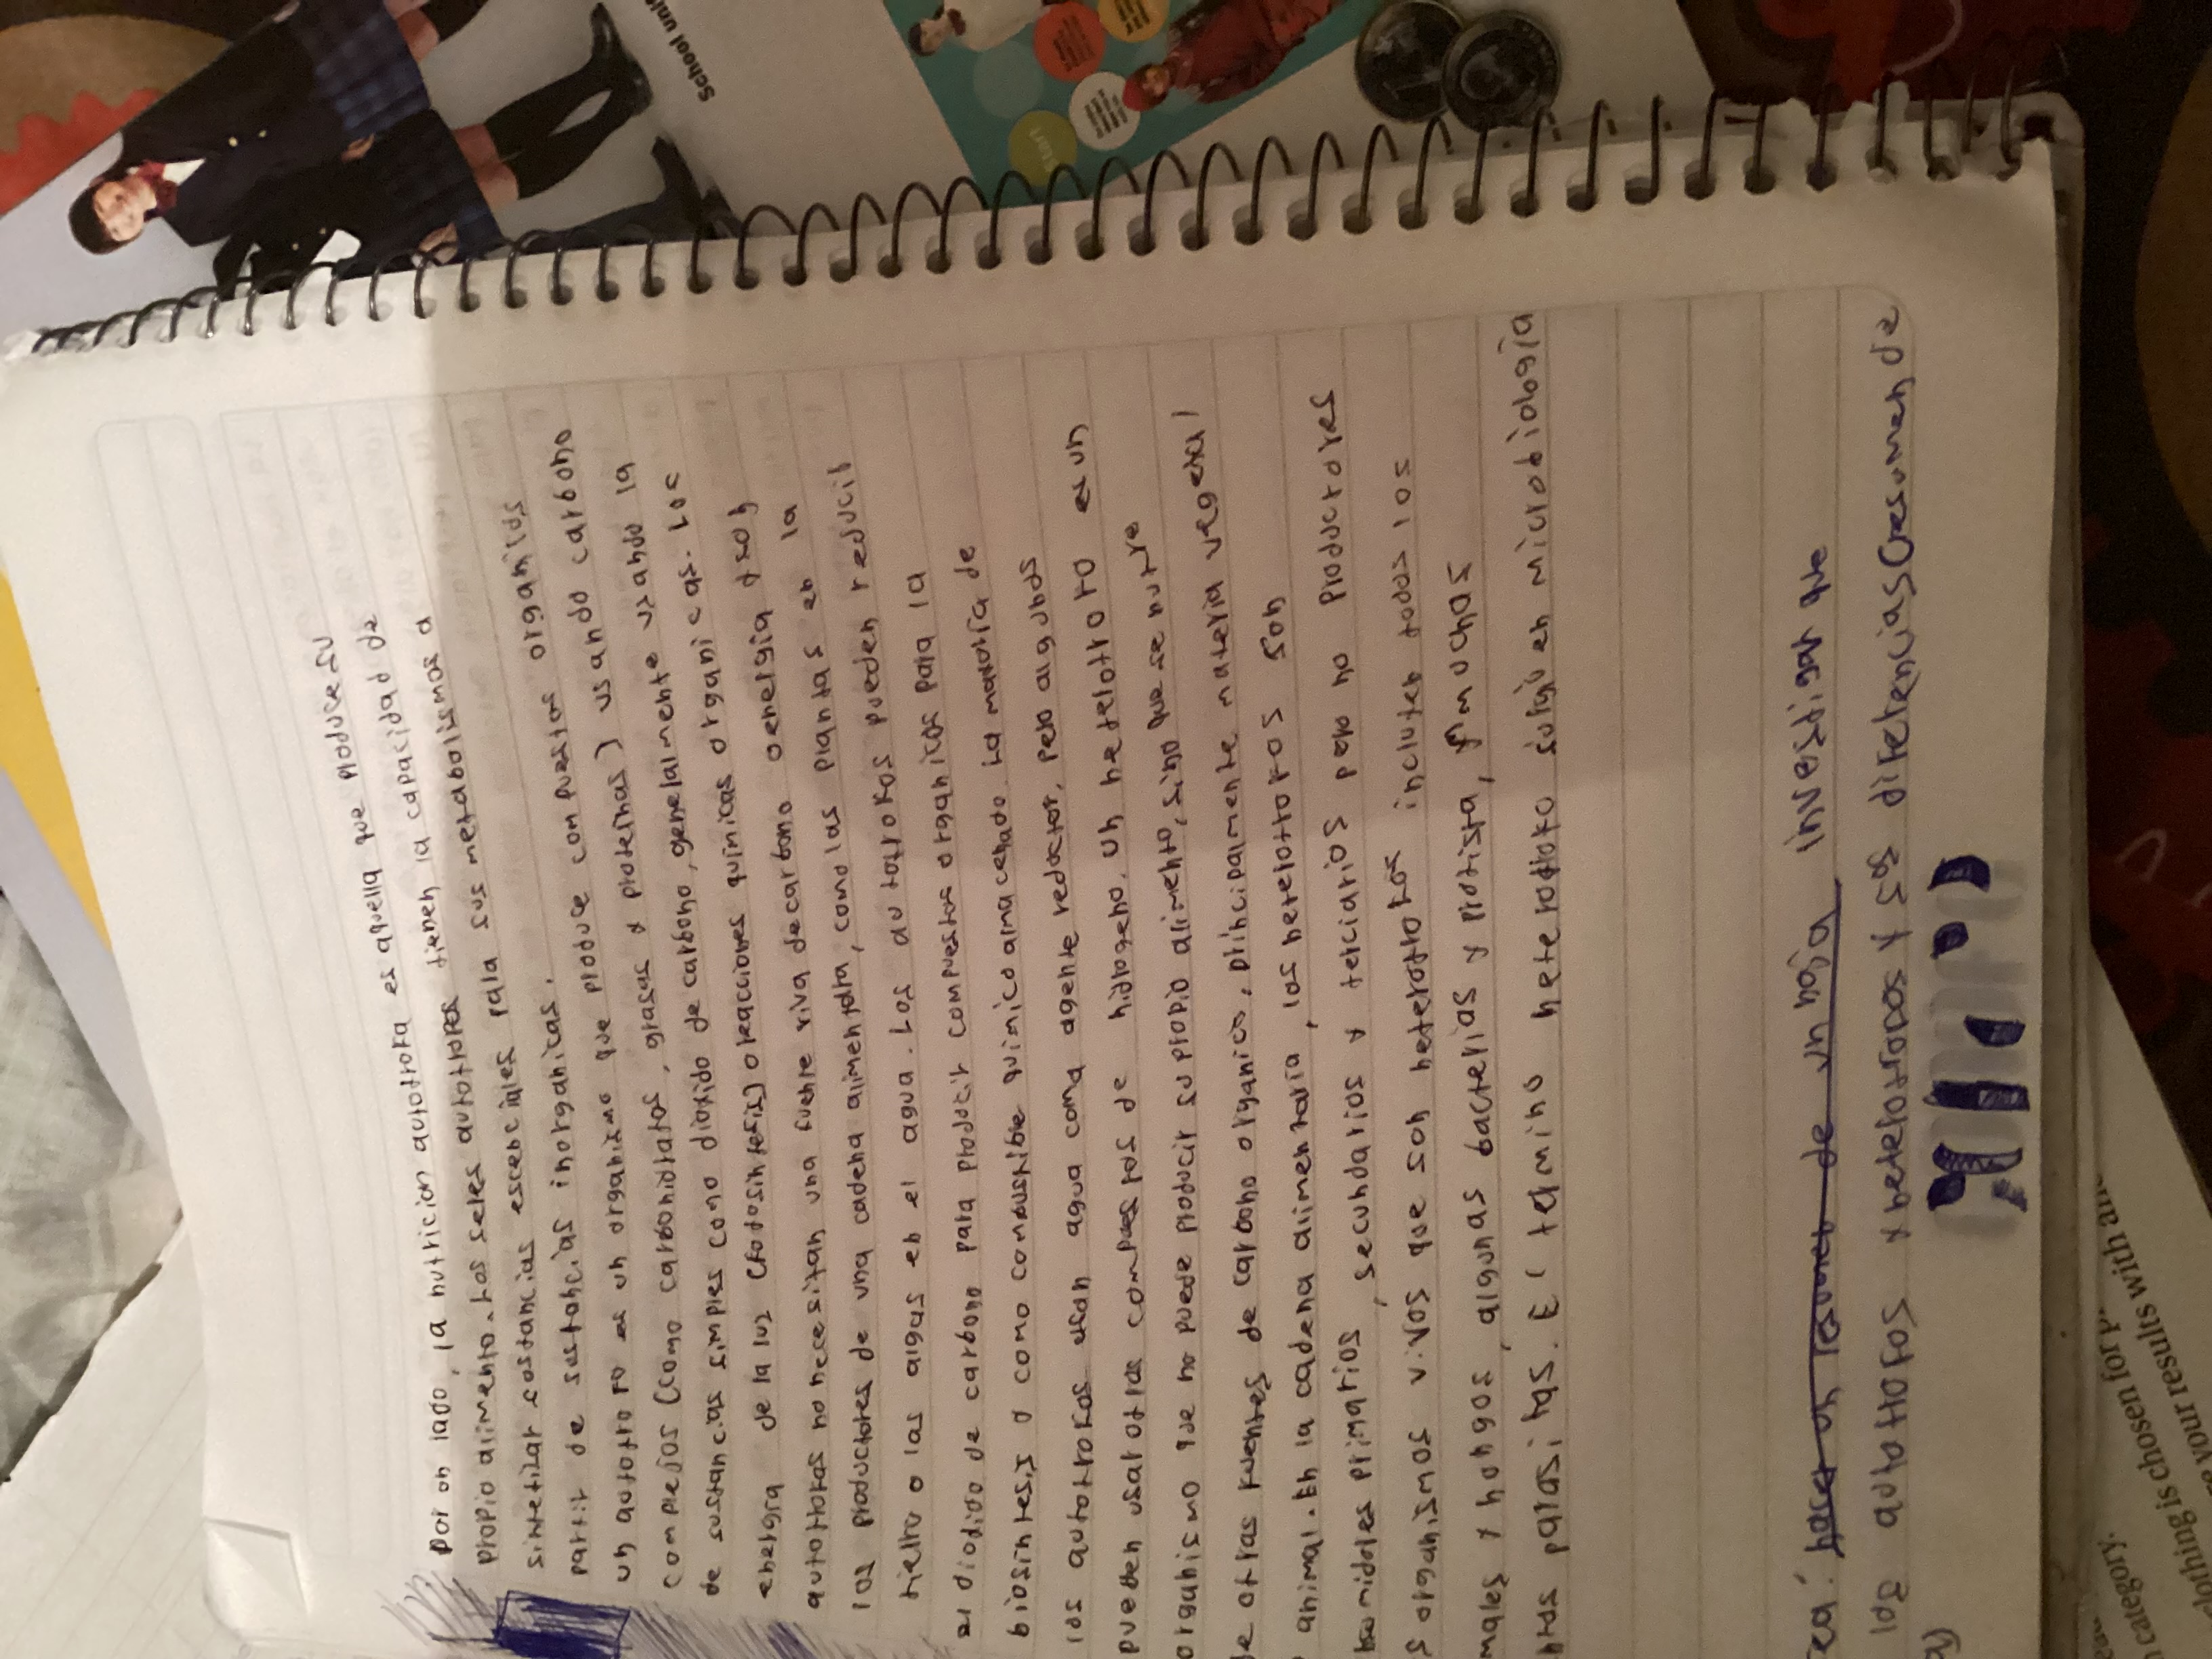 Por on lado, la nutricion autotrofa es aquella que produce su
propio alimento. Los seres autotrofos tienen la capacidad de
sintetizar sostancias escenciales para sus metabolismos a
partir de sestancias inorganicas.
un autotrofo es un organismo que produce compuestos organicos
complejos (como carbohidratos, grasas y proteinas) usando carbono
de sustancias simples como dioxido de carbono, generalmente usando la
energia de la luz (fotosintesis) o reacciones quimicas organicas. Los
autotrofos no necesitan una fuente viva de carbono o energia y son
los productores de una cadena alimentaria, como las plantas en la
tierra o las algas en el agua. Los autotrofos pueden reducir
el dioxido de carbono para producir compuestos organicos para la
biosintesis y como combustible quimico almacenado. La mayoria de
los autotrofos usan agua como agente reductor, pero algunos
pueden usar otros compuestos de hidrogeno. Un heterotrofo es un
organismo que no puede producir su propio alimento, sino que se nutre
de otras fuentes de carbono organico, principalmente materia vegetal
animal. En la cadena alimentaria, los heterotrofos son
sumidores primarios, secundarios y terciarios pero no productores
s organismos vivos que son heterotrofos incluyen todos los
males y hongos, algunas bacterias y protista, y muchas
ntas parasitas. El termino heterotrofo surgio en microbiologia
rea: hacer un resumen de un hoja investigar que
los autotrofos y heterotrofos y sos diferencias (resumen de
a)
School uni
Start
1
ees your results with an
thing is chosen for
category.